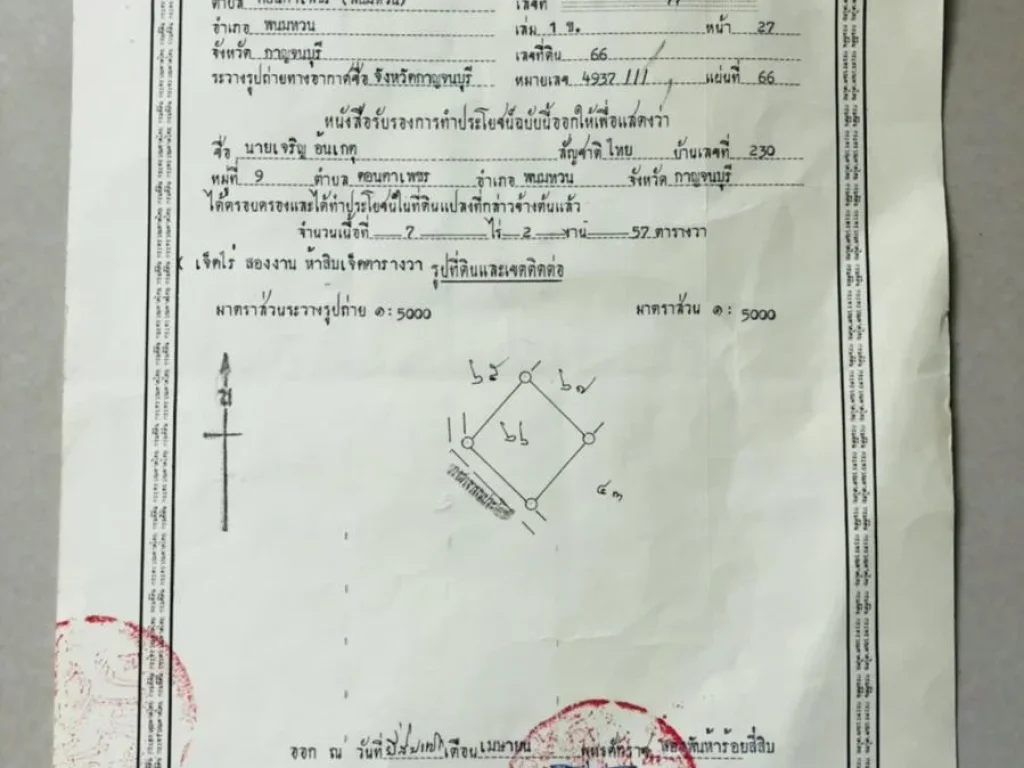 ตำบล ดอนตาเพชร (พนมทวน) เลขที่
อำเภอ พนมทวน เล่ม 1 ข. หน้า 27
จังหวัด กาญจนบุรี เลขที่ดิน 66
ระวางรูปถ่ายทางอากาศชื่อ จังหวัดกาญจนบุรี หมายเลข 4937 III แผ่นที่ 66
หนังสือรับรองการทำประโยชน์ฉบับนี้ออกให้เพื่อแสดงว่า
ชื่อ นายเจริญ อ้นเกตุ สัญชาติ ไทย บ้านเลขที่ 230
หมู่ที่ 9 ตำบล ดอนตาเพชร อำเภอ พนมทวน จังหวัด กาญจนบุรี
ได้ครอบครองและได้ทำประโยชน์ในที่ดินแปลงที่กล่าวข้างต้นแล้ว
จำนวนเนื้อที่ 7 ไร่ 2 งาน 57 ตารางวา
x เจ็ดไร่ สองงาน ห้าสิบเจ็ดตารางวา รูปที่ดินและเขตติดต่อ
มาตราส่วนระวางรูปถ่าย ๑: 5000 มาตราส่วน ๑: 5000
น
๖๗
๖๖
๔๓
ออก ณ วันที่ เดือน เมษายน พุทธศักราช สองพันห้าร้อยสี่สิบ